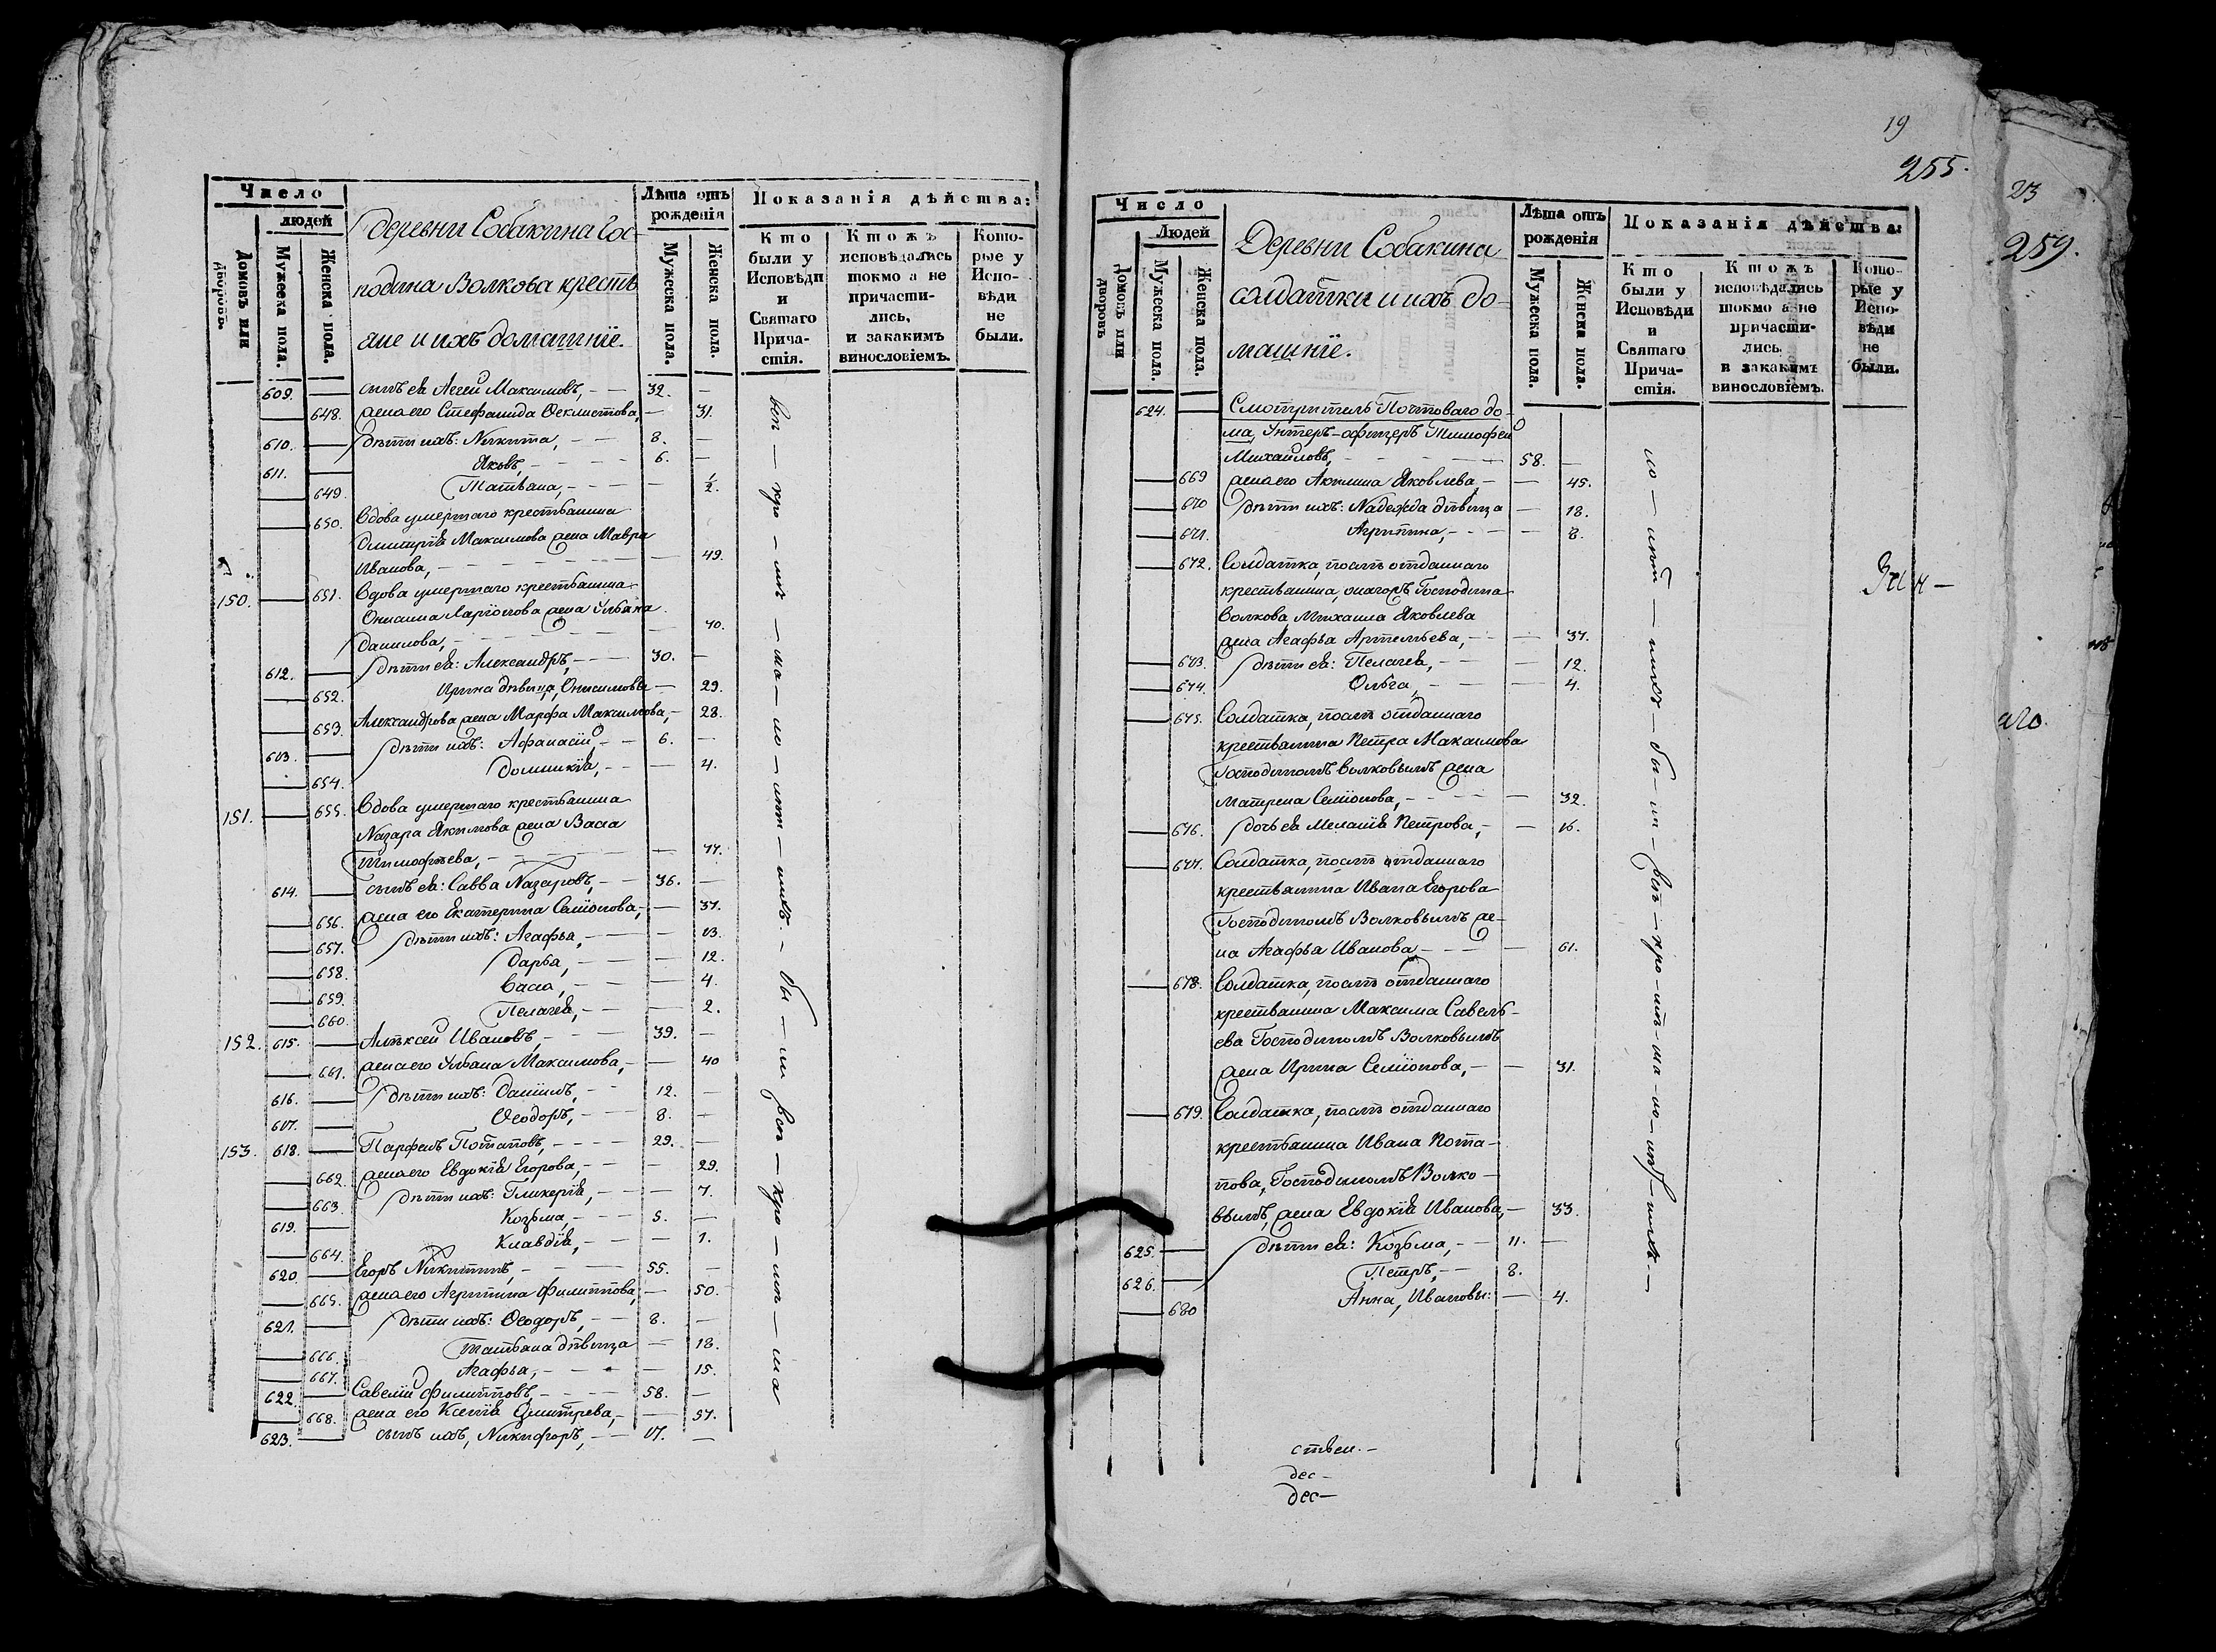 Число
людей
Домовъ или дворовъ.
Мужеска пола.
Женска пола.
Деревни Собакина Гос-
подина Волкова крестья
яне и ихъ домашніе.
Лѣта отъ рожденія
Мужеска пола.
Женска пола.
Показанія дѣйства:
Кто были у Исповѣди и Святаго Прича-стія.
Ктожъ исповѣдались токмо а не причасти-лись, и закакимъ винословіемъ.
Кото-рые у Испо-вѣди не были.
609. — сынъ ея Агей Максимовъ, — 32. —
— 648. жена его Стефанида Феклистова, — 31.
610. — дѣти ихъ: Никита, — 8. —
611. — Яковъ, — 6. —
— 649. Татьяна, — 1/2.
— 650. Вдова умершаго крестьянина
Дмитрія Максимова жена Мавра
Иванова, — 49.
150. — 651. Вдова умершаго крестьянина
Онисима Ларіонова жена Ульяна
Данилова, — 70.
612. — дѣти ея: Александръ, — 30. —
— 652. Ирина дѣвица, Онисимовы — 29.
— 653. Александрова жена Марфа Максимова, — 28.
613. — дѣти ихъ: Афанасій — 6. —
— 654. Домникія, — 4.
151. — 655. Вдова умершаго крестьянина
Назара Якимова жена Васса
Тимофѣева, — 77.
614. — сынъ ея: Савва Назаровъ, — 36. —
— 656. жена его Екатерина Семіонова, — 37.
— 657. дѣти ихъ: Агафья, — 13.
— 658. Дарья, — 12.
— 659. Васса, — 4.
— 660. Пелагея, — 2.
152. 615. — Алѣксей Ивановъ, — 39. —
— 661. жена его Ульяна Максимова, — 40
616. — дѣти ихъ: Даніилъ, — 12. —
617. — Ѳеодоръ, — 8. —
153. 618. — Парфенъ Потаповъ, — 29. —
— 662. жена его Евдокія Егорова, — 29.
— 663. дѣти ихъ: Гликерія, — 7.
619. — Козьма, — 5. —
— 664. Клавдія, — 1.
620. — Егоръ Никитинъ, — 55. —
— 665. жена его Агрипина Филиппова, — 50.
621. — дѣти ихъ: Ѳеодоръ, — 8. —
— 666. Татьяна дѣвица — 18.
— 667. Агафья, — 15.
622. — Савелій Филипповъ, — 58. —
— 668. жена его Ксенія Дмитрева, — 57.
623. — сынъ ихъ, Никифоръ, — 17. —
19
255.
Число
Людей
Домовъ или дворовъ
Мужеска пола.
Женска пола.
Деревни Собакина
солдатки и ихъ до-
машніе.
Лѣта отъ рожденія
Мужеска пола.
Женска пола.
Показанія дѣйства:
Кто были у Исповѣди и Святаго Прича-стія.
Ктожъ исповѣдались токмо а не причасти-лись. и закакимъ винословіемъ.
Кото-рые у Испо-вѣди не были.
624. — Смотритель Почтоваго до-
ма, Унтеръ-офицеръ Тимофей
Михайловъ, — 58. —
— 669 жена его Акилина Яковлева, — 45.
— 670 дѣти ихъ: Надежда дѣвица — 18.
— 671. Агрипина, — 8.
— 672. Солдатка,
крестьянина, Господина
Волкова, Михаила Яковлева
жена Агафья Артемьева, — 37.
— 673. дѣти ея: Пелагея, — 12.
— 674. Ольга, — 4.
— 675. Солдатка, отданнаго
крестьянина Петра Максимова
Господиномъ Волковымъ жена
Матрена Семіонова, — 32.
— 676. дочь ея Меланія Петрова, — 16.
— 677. Солдатка, отданнаго
крестьянина Ивана Егорова
Господиномъ Волковымъ же-
на Агафья Иванова — 61.
— 678. Солдатка, отданнаго
крестьянина Максима Савель-
ева Господиномъ Волковымъ
жена Ирина Семіонова, — 31.
— 679. Солдатка, отданнаго
крестьянина Ивана Пота-
пова, Господиномъ Волко-
вымъ, жена Евдокія Иванова, — 33.
625. — дѣти ея: Козьма, — 11. —
626. — Петръ, — 8.
— 680 Анна, Ивановы: — 4.
ствен.-
дес-
дес-
23
259.